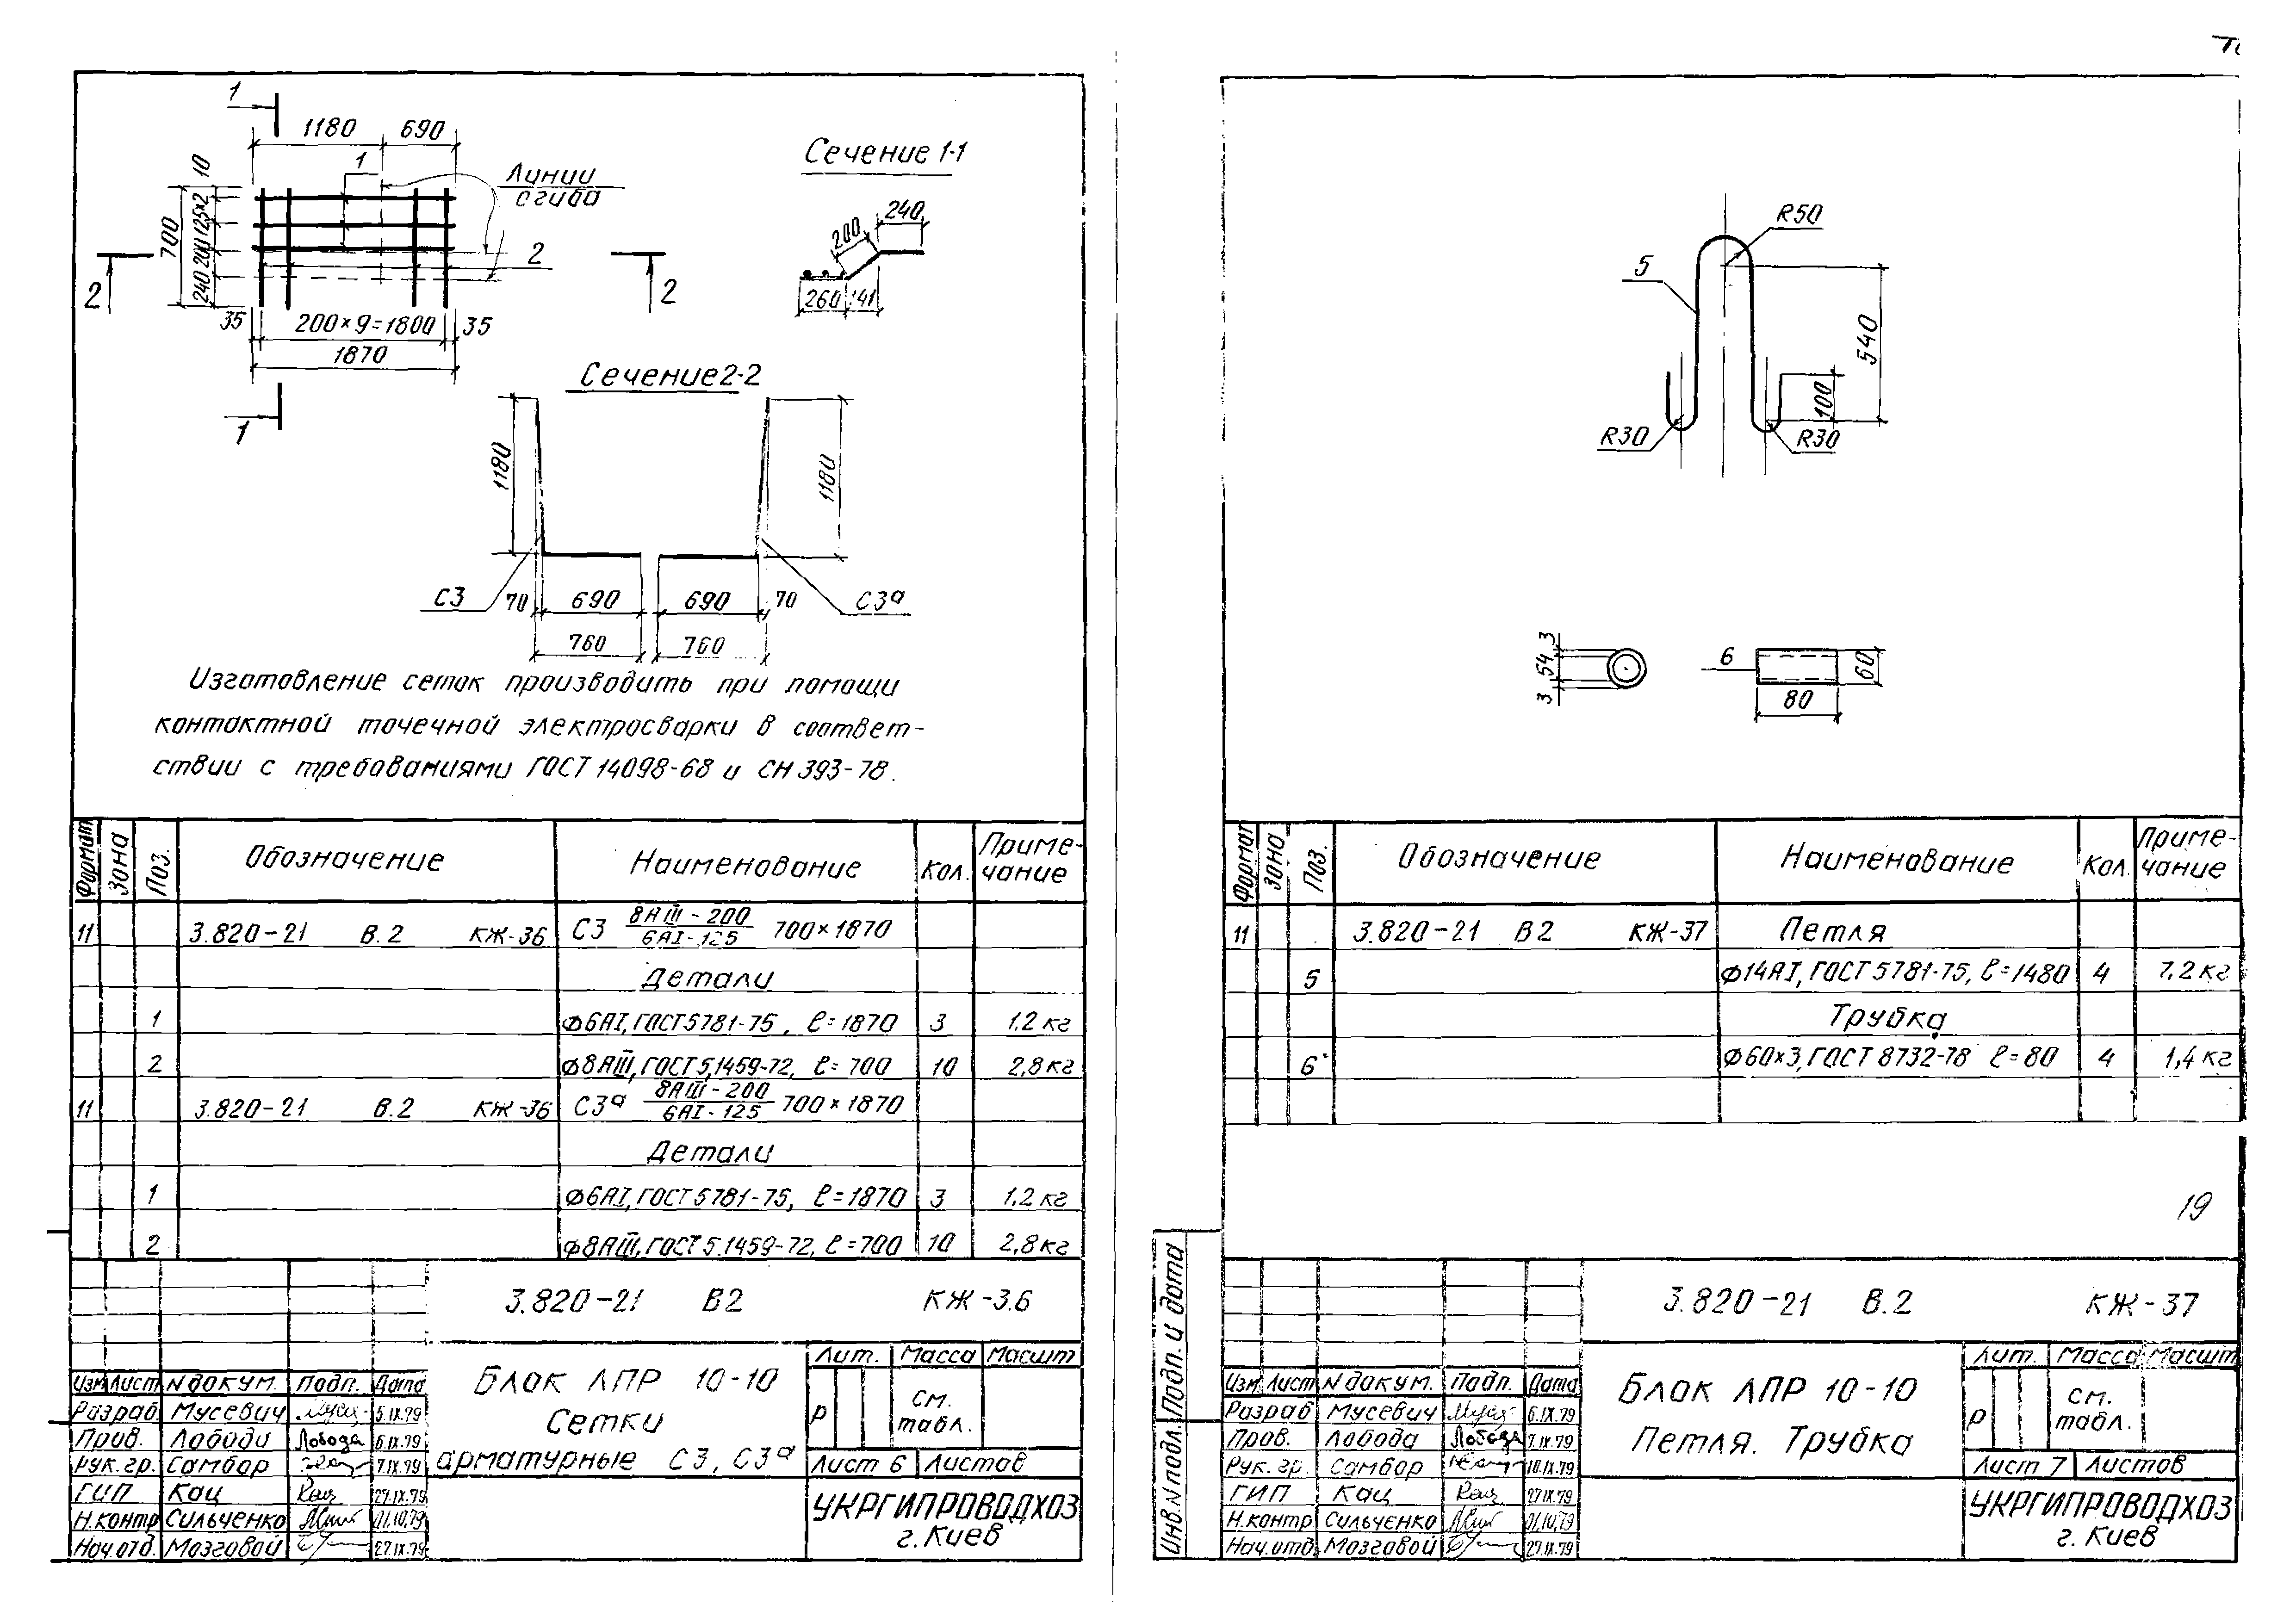 1
1180 690
10
1
Линии
сгиба
125×2
700
200
240
2
2
2
35 200×9=1800 35
1870
1
Сечение 1-1
240
200
260 141
Сечение 2-2
1180
1180
С3 70 690 690 70 С3ª
760 760
Изготовление сеток производить при помощи
контактной точечной электросварки в соответ-
ствии с требованиями ГОСТ 14098-68 и СН 393-78.
Формат Зона Поз. Обозначение Наименование Кол. Приме-
чание
11 3.820-21 В.2 КЖ-36 С3 8АIII-200/6АI-125 700×1870
Детали
1 ф6АI, ГОСТ 5781-75, ℓ=1870 3 1,2 кг
2 ф8АIII, ГОСТ 5.1459-72, ℓ=700 10 2,8 кг
11 3.820-21 В.2 КЖ-36 С3ª 8АIII-200/6АI-125 700×1870
Детали
1 ф6АI, ГОСТ 5781-75, ℓ=1870 3 1,2 кг
2 ф8АIII, ГОСТ 5.1459-72, ℓ=700 10 2,8 кг
3.820-21 В2 КЖ-36
Блок ЛПР 10-10
Сетки
арматурные С3, С3ª
Лит. Масса Масшт
Р см.
табл.
Лист 6 Листов
УКРГИПРОВОДХОЗ
г. Киев
Изм Лист N докум. Подп. Дата
Разраб Мусевич 5.IX.79
Пров. Лобода Лобода 6.IX.79
Рук.гр. Самбор 7.IX.79
ГИП Кац Кац 27.IX.79
Н.контр Сильченко 01.10.79
Нач.отд. Мозговой 27.IX.79
R50
5
540
100
R30 R30
3
54
3
6
60
80
Формат Зона Поз. Обозначение Наименование Кол. Приме-
чание
11 3.820-21 В2 КЖ-37 Петля
5 ф14АI, ГОСТ 5781-75, ℓ=1480 4 7,2 кг
Трубка
6 ф60×3, ГОСТ 8732-78 ℓ=80 4 1,4 кг
19
Инв. N подл. Подп. и дата
3.820-21 В.2 КЖ-37
Блок ЛПР 10-10
Петля. Трубка
Лит. Масса Масшт
Р см.
табл.
Лист 7 Листов
УКРГИПРОВОДХОЗ
г. Киев
Изм Лист N докум. Подп. Дата
Разраб Мусевич 6.IX.79
Пров. Лобода Лобода 7.IX.79
Рук.гр. Самбор 10.IX.79
ГИП Кац Кац 27.IX.79
Н.контр Сильченко 01.10.79
Нач.отд. Мозговой 27.IX.79